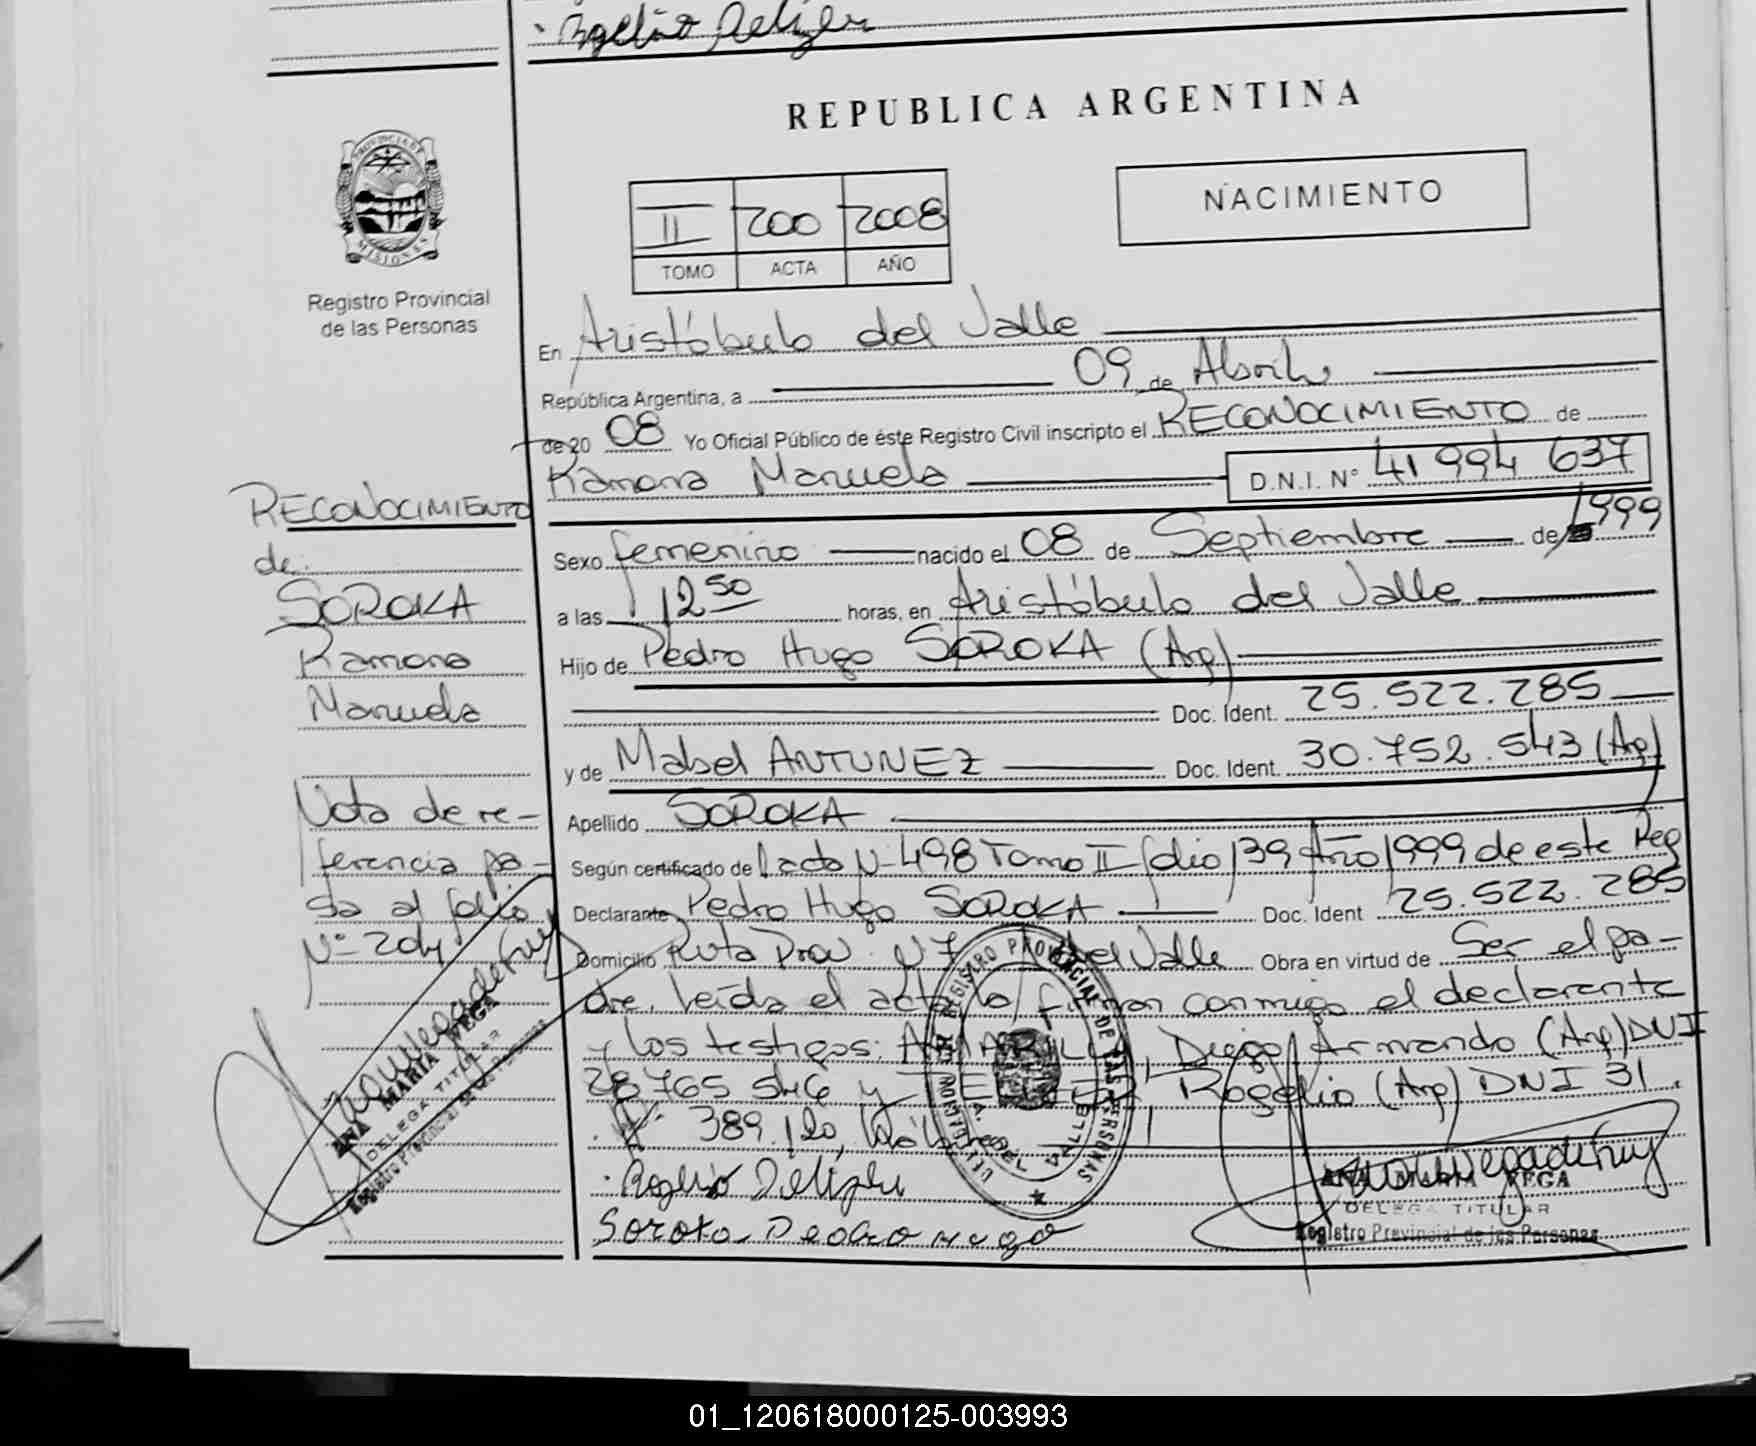 Rogelio Deliger
REPUBLICA ARGENTINA
PROVINCIA DE
MISIONES
Registro Provincial
de las Personas
II 200 2008
TOMO ACTA AÑO
NACIMIENTO
En Aristóbulo del Valle
República Argentina, a 09 de Abril
de 20 08 Yo Oficial Público de éste Registro Civil inscripto el RECONOCIMIENTO de
Ramona Manuela D.N.I. N° 41 994 637
Sexo femenino nacido el 08 de Septiembre de 1999
a las 12 50 horas, en Aristóbulo del Valle
Hijo de Pedro Hugo SOROKA (Arg)
Doc. Ident. 25.522.285
y de Mabel ANTUNEZ Doc. Ident. 30.752.543 (Arg)
Apellido SOROKA
Según certificado de acta Nº 498 Tomo II folio 139 Año 1999 de este Reg
Declarante Pedro Hugo SOROKA Doc. Ident 25.522.285
Domicilio Ruta Prov. Nº 7 del Valle Obra en virtud de Ser el pa-
dre, leída el acta la firman conmigo el declarante
y los testigos: Diego Armando (Arg) DNI
28 765 546 y Rogelio (Arg) DNI 31.
389.120,
Rogelio
Soroka Pedro Hugo
RECONOCIMIENTO
de:
SOROKA
Ramona
Manuela
Nota de re-
ferencia pa-
sa al folio
Nº 204
ANA MARIA VEGA
DELEGA TITULAR
Registro Provincial de las Personas
REGISTRO PROVINCIAL DE LAS PERSONAS
A. DEL VALLE
ANA MARIA VEGA
DELEGA TITULAR
Registro Provincial de las Personas
01_120618000125-003993